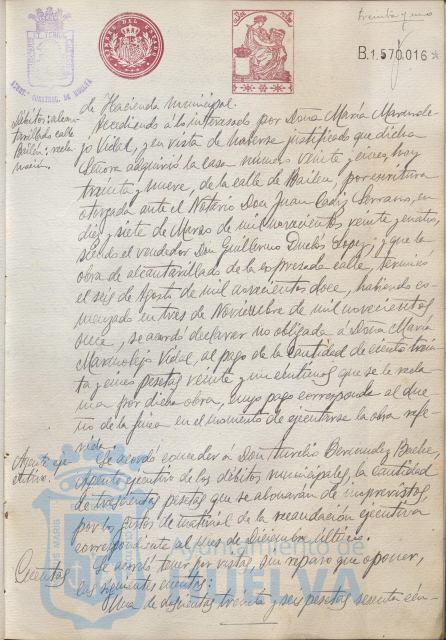 treinta y uno
B.1.570.016
TIMBRE DEL ESTADO
de Hacienda municipal.
Débitos: alcan-
tarillado calle
Bailén: recla-
mación.
Accediendo á lo interesado por Doña María Marmole-
jo Vidal, y en vista de haberse justificado que dicha
Señora adquirió la casa número veinte y cinco, hoy
treinta y nueve, de la calle de Bailén, por escritura
otorgada ante el Notario Don Juan Cádiz Serrano, en
diez y siete de Marzo de mil novecientos veinte y cuatro,
siendo el vendedor Don Guillermo Duclós López; y que la
obra de alcantarillado de la expresada calle, terminó
el seis de Agosto de mil novecientos doce, habiendo co-
menzado en tres de Noviembre de mil novecientos
once, se acordó declarar no obligada á Doña María
Marmolejo Vidal, al pago de la cantidad de ciento trein-
ta y cinco pesetas veinte y un céntimos que se le recla-
ma por dicha obra, cuyo pago corresponde al due-
ño de la finca en el momento de ejecutarse la obra refe-
rida.
Agente eje-
cutivo.
Se acordó conceder á Don Aurelio Bermúdez
agente ejecutivo de los débitos municipales, la cantidad
de trescientas pesetas que se abonarán de imprevistos,
por los gastos de material de la recaudación ejecutiva
correspondiente al mes de Diciembre último.
Cuentas
Se acordó tener por vistas, sin reparo que oponer,
las siguientes cuentas:
Una de doscientas treinta y seis pesetas sesenta cén-
Ayuntamiento de
HUELVA